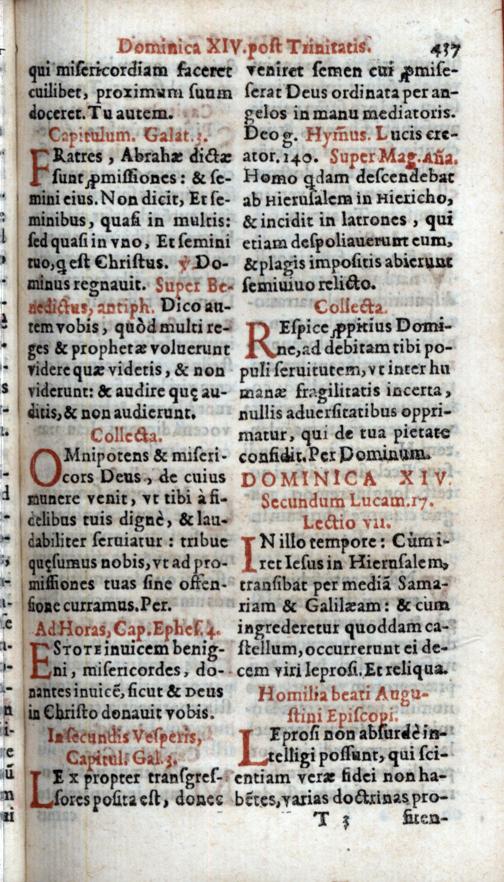 Dominica XIV. post Trinitatis. 437
qui misericordiam faceret
cuilibet, proximum suum
doceret. Tu autem.
Capitulum. Galat. 3.
FRatres, Abrahæ dictæ
sunt ꝓmissiones: & se-
mini eius. Non dicit, Et se-
minibus, quasi in multis:
sed quasi in vno, Et semini
tuo, q est Christus. ℣ Do-
minus regnauit. Super Be-
nedictus, antiph. Dico au-
tem vobis, quòd multi re-
ges & prophetæ voluerunt
videre quæ videtis, & non
viderunt: & audire quę au-
ditis, & non audierunt.
Collecta.
OMnipotens & miseri-
cors Deus, de cuius
munere venit, vt tibi à fi-
delibus tuis dignè, & lau-
dabiliter seruiatur: tribue
quęsumus nobis, vt ad pro-
missiones tuas sine offen-
sione curramus. Per.
Ad Horas, Cap. Ephes. 4.
ESTOTE inuicem benig-
ni, misericordes, do-
nantes inuicē, sicut & Deus
in Christo donauit vobis.
In secundis Vesperis,
Capitul. Gal. 3.
LEx propter transgres-
sores posita est, donec
veniret semen cui ꝓmise-
serat Deus ordinata per an-
gelos in manu mediatoris.
Deo g. Hym̄us. Lucis cre-
ator. 140. Super Mag. Aña.
Homo qdam descendebat
ab Hierusalem in Hiericho,
& incidit in latrones, qui
etiam despoliauerunt eum,
& plagis impositis abierunt
semiuiuo relicto.
Collecta.
REspice ꝓpitius Domi-
ne, ad debitam tibi po-
puli seruitutem, vt inter hu
manæ fragilitatis incerta,
nullis aduersitatibus oppri-
matur, qui de tua pietate
confidit. Per Dominum.
DOMINICA XIV.
Secundum Lucam. 17.
Lectio vii.
IN illo tempore: Cùm i-
ret Iesus in Hierusalem,
transibat per mediā Sama-
riam & Galilæam: & cùm
ingrederetur quoddam ca-
stellum, occurrerunt ei de-
cem viri leprosi. Et reliqua.
Homilia beati Augu-
stini Episcopi.
LEprosi non absurdè in-
telligi possunt, qui sci-
entiam veræ fidei non ha-
bētes, varias doctrinas pro-
T 3 fiten-